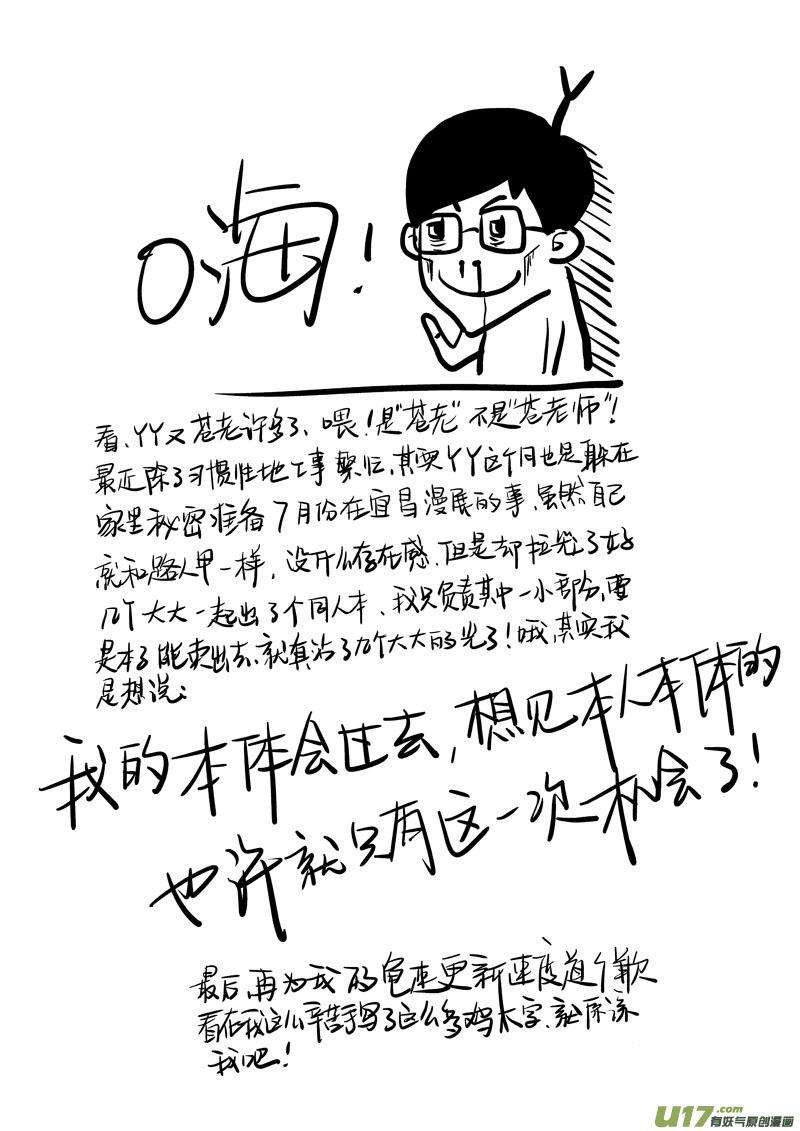 嗨!
看、YY又苍老许多了、喂!是"苍老"不是"苍老师"!
最近除了习惯性地工事繁忙,其实YY这个月也是躲在
家里秘密准备7月份在宜昌漫展的事、虽然自己
就和路人甲一样,没什么存在感、但是却拉拢了好
几个大大一起出了个同人本、我只负责其中一小部分,要
是本子能卖出去、就真沾了几个大大的光了!哦,其实我
是想说:
我的本体会过去,想见本人本体的
也许就只有这一次机会了!
最后,再为我的龟速更新速度道个歉
看在我这么辛苦手写了这么多鸡太字、就原谅
我吧!
U17.com
有妖气原创漫画